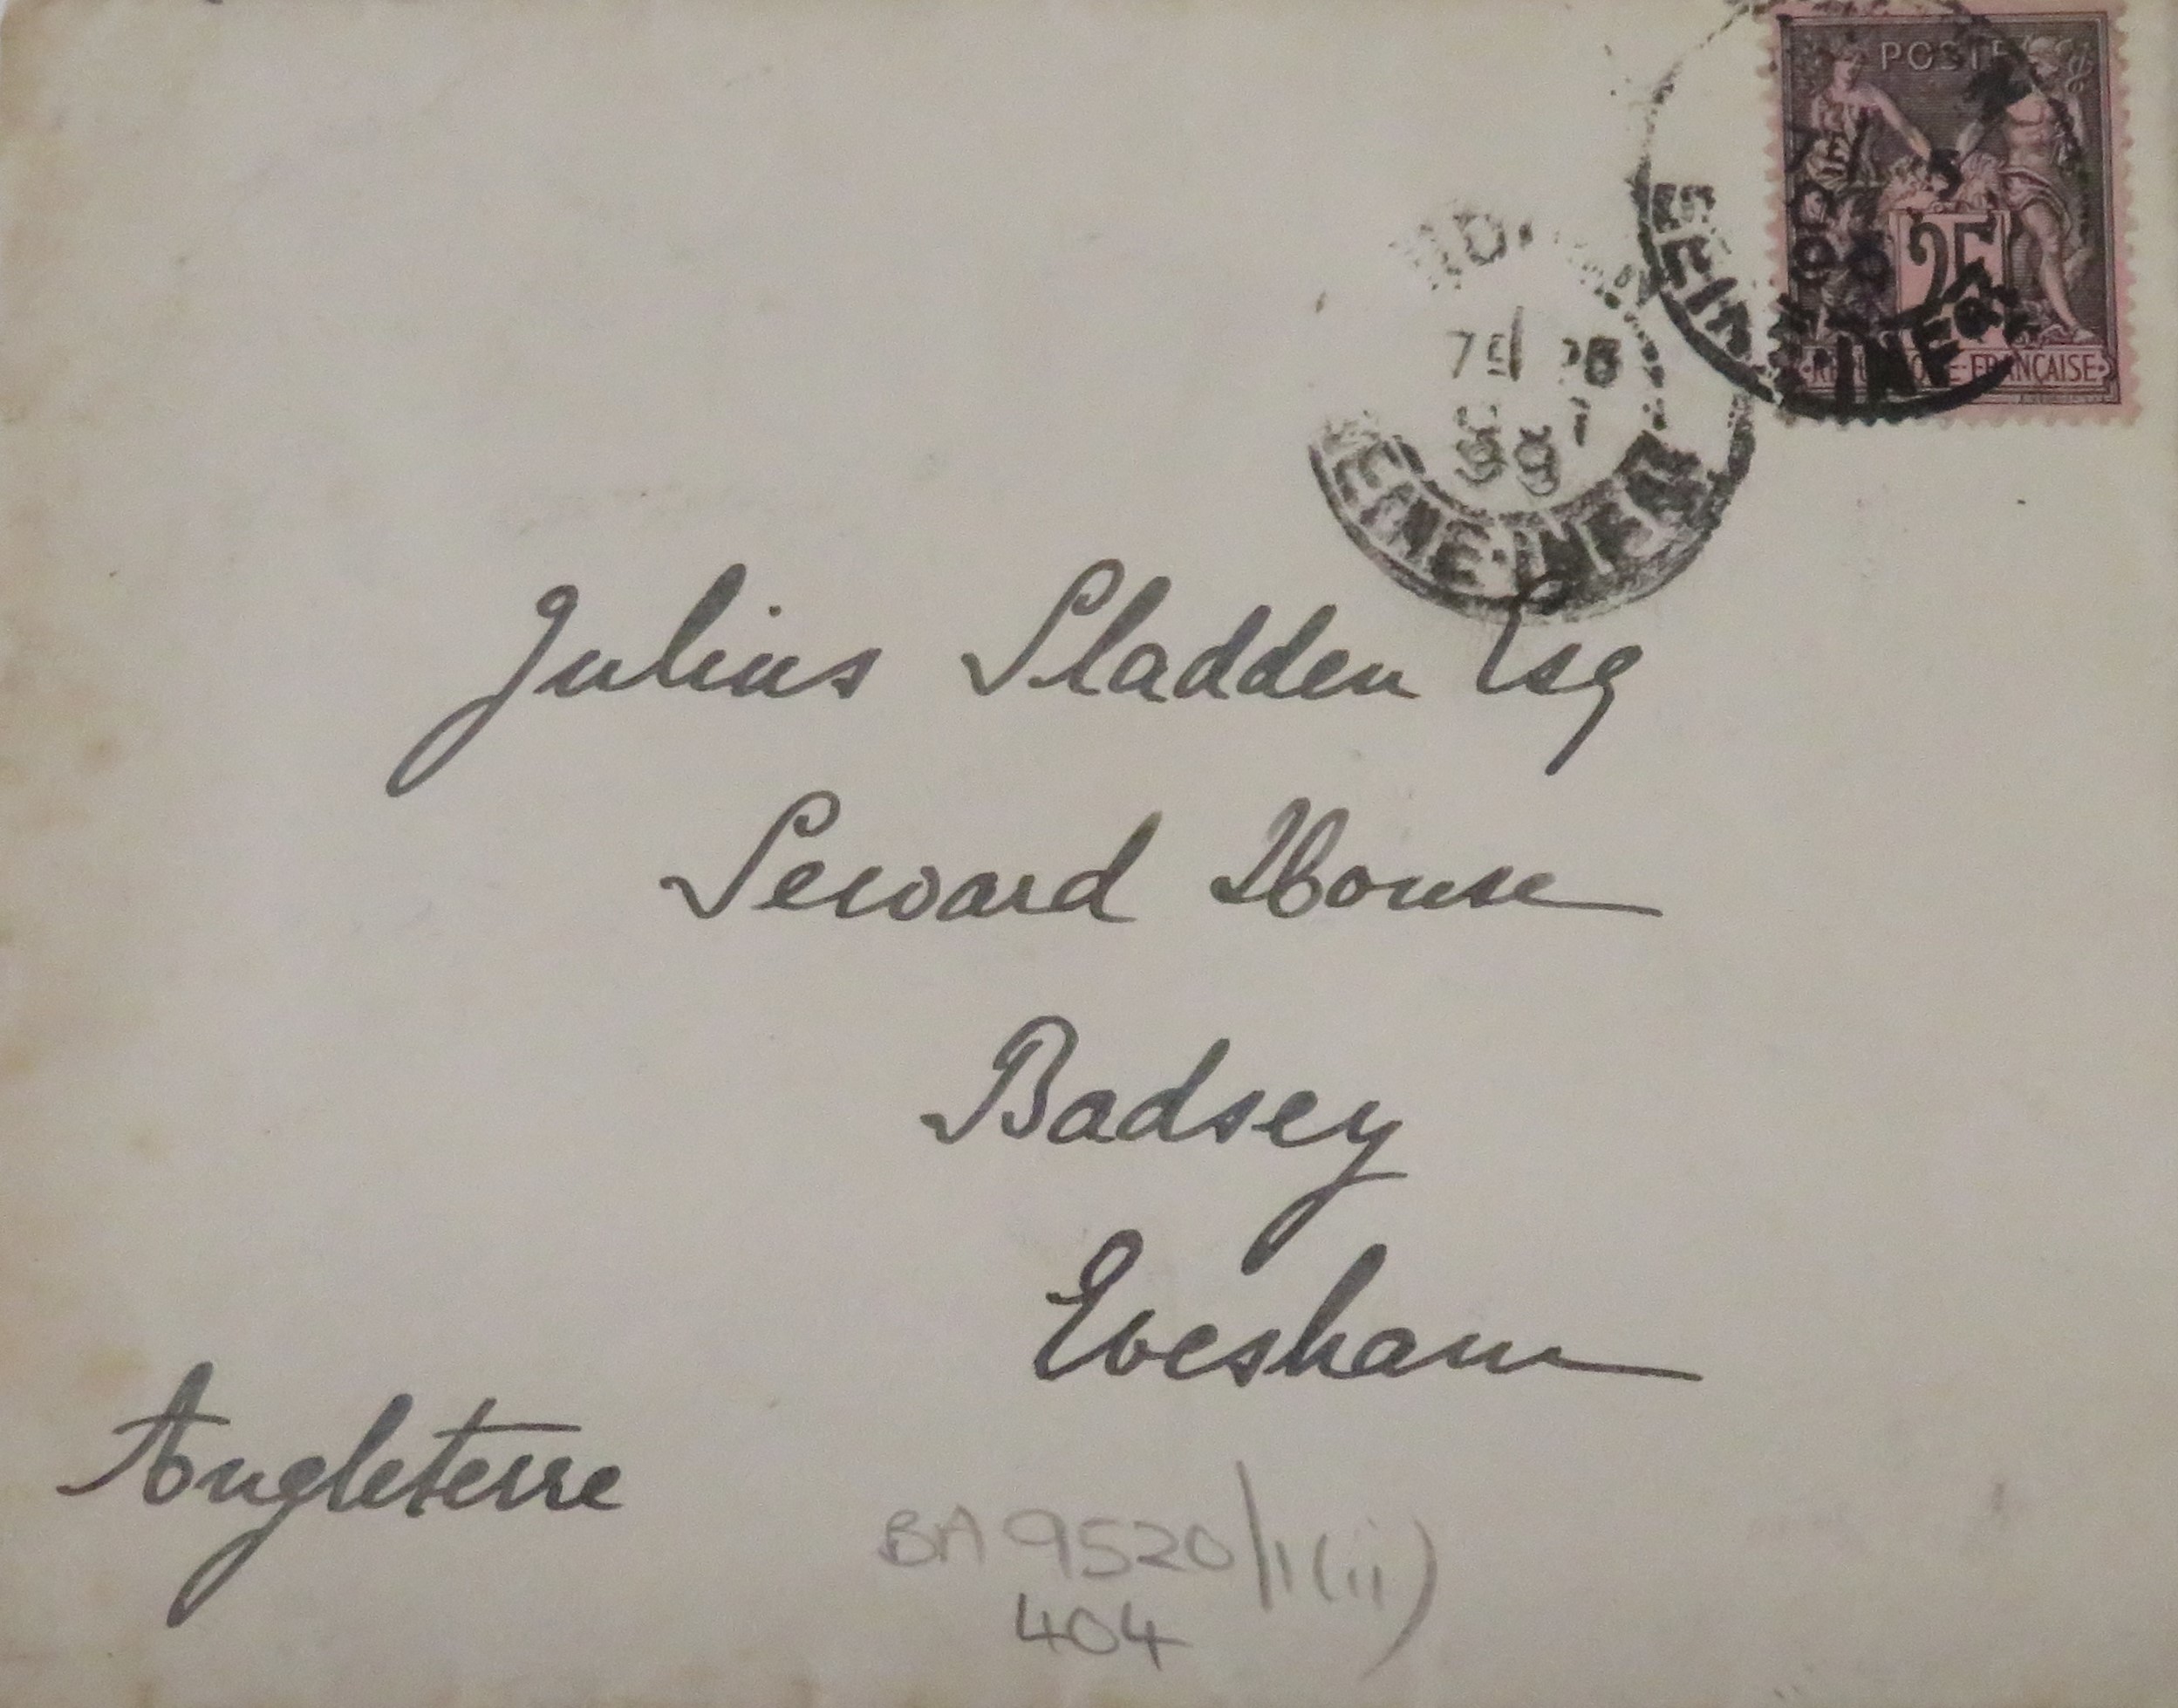 POSTE
25
REPUBLIQUE FRANÇAISE
7E
98
SEINE-INFRE
Julius Sladden Esq
Seward House
Badsey
Evesham
Angleterre
BA 9520/1(ii)
404